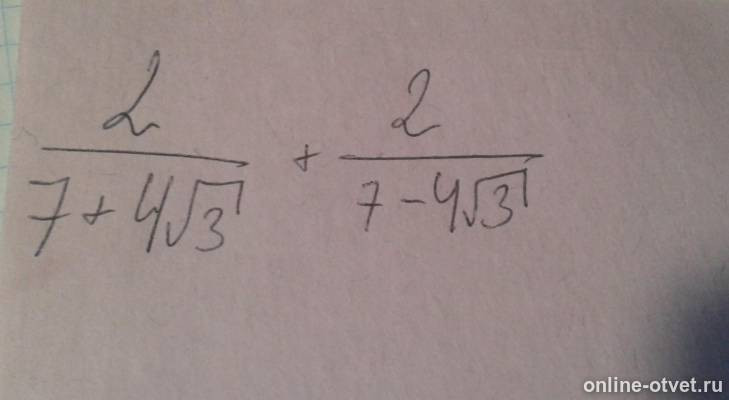 2/(7+4√3) + 2/(7-4√3)
online-otvet.ru